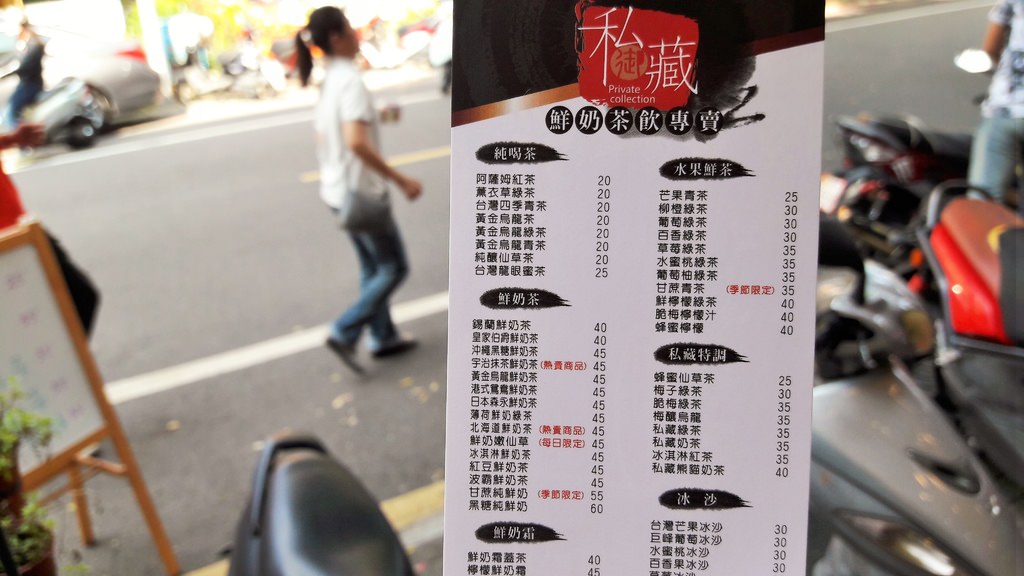 私藏
御
Private
collection
鮮奶茶飲專賣
純喝茶
阿薩姆紅茶 20
薰衣草綠茶 20
台灣四季青茶 20
黃金烏龍茶 20
黃金烏龍綠茶 20
黃金烏龍青茶 20
純釀仙草茶 20
台灣龍眼蜜茶 25
鮮奶茶
錫蘭鮮奶茶 40
皇家伯爵鮮奶茶 40
沖繩黑糖鮮奶茶 45
宇治抹茶鮮奶茶(熱賣商品) 45
黃金烏龍鮮奶茶 45
港式鴛鴦鮮奶茶 45
日本森永鮮奶茶 45
薄荷鮮奶綠茶 45
北海道鮮奶茶(熱賣商品) 45
鮮奶嫩仙草(每日限定) 45
冰淇淋鮮奶茶 45
紅豆鮮奶茶 45
波霸鮮奶茶 45
甘蔗純鮮奶(季節限定) 55
黑糖純鮮奶 60
鮮奶霜
鮮奶霜蓋茶 40
檸檬鮮奶霜 45
水果鮮茶
芒果青茶 25
柳橙綠茶 30
葡萄綠茶 30
百香綠茶 30
草莓綠茶 35
水蜜桃綠茶 35
葡萄柚綠茶 35
甘蔗青茶(季節限定) 35
鮮檸檬綠茶 40
脆梅檸檬汁 40
蜂蜜檸檬 40
私藏特調
蜂蜜仙草茶 25
梅子綠茶 30
脆梅綠茶 35
梅釀烏龍 35
私藏綠茶 35
私藏奶茶 35
冰淇淋紅茶 35
私藏熊貓奶茶 40
冰沙
台灣芒果冰沙 30
巨峰葡萄冰沙 30
水蜜桃冰沙 30
百香果冰沙 30